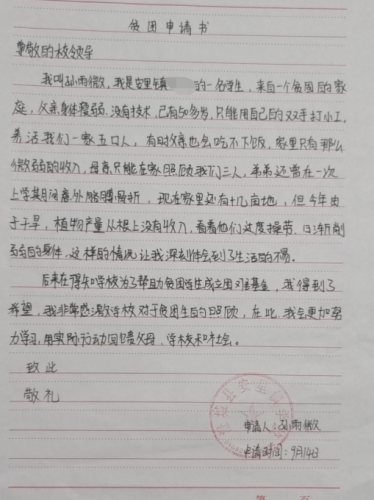 贫困申请书
尊敬的校领导
我叫孙雨微,我是安里镇 的一名学生,来自一个贫困的家
庭,父亲身体瘦弱,没有技术,已有50多岁,只能用自己的双手打小工,
养活我们一家五口人,有时父亲也会吃不下饭,家里只有那么
微弱的收入,母亲只能在家照顾我们三人,弟弟还曾在一次
上学其间意外胳膊骨折,现在家里还有十几亩地,但今年由
于干旱,植物产量从根上没有收入,看着他们这度操劳,日渐削
弱的身体,这样的情况让我深刻体会到了生活的不易。
后来在得知学校为了帮助贫困学生成立困 基金,我得到了
希望,我非常感激学校对于贫困生的照顾,在此,我会更加努
力学习,用实际行动回馈父母、学校和社会。
致此
敬礼
申请人:孙雨微
申请时间:9月14日
第 页